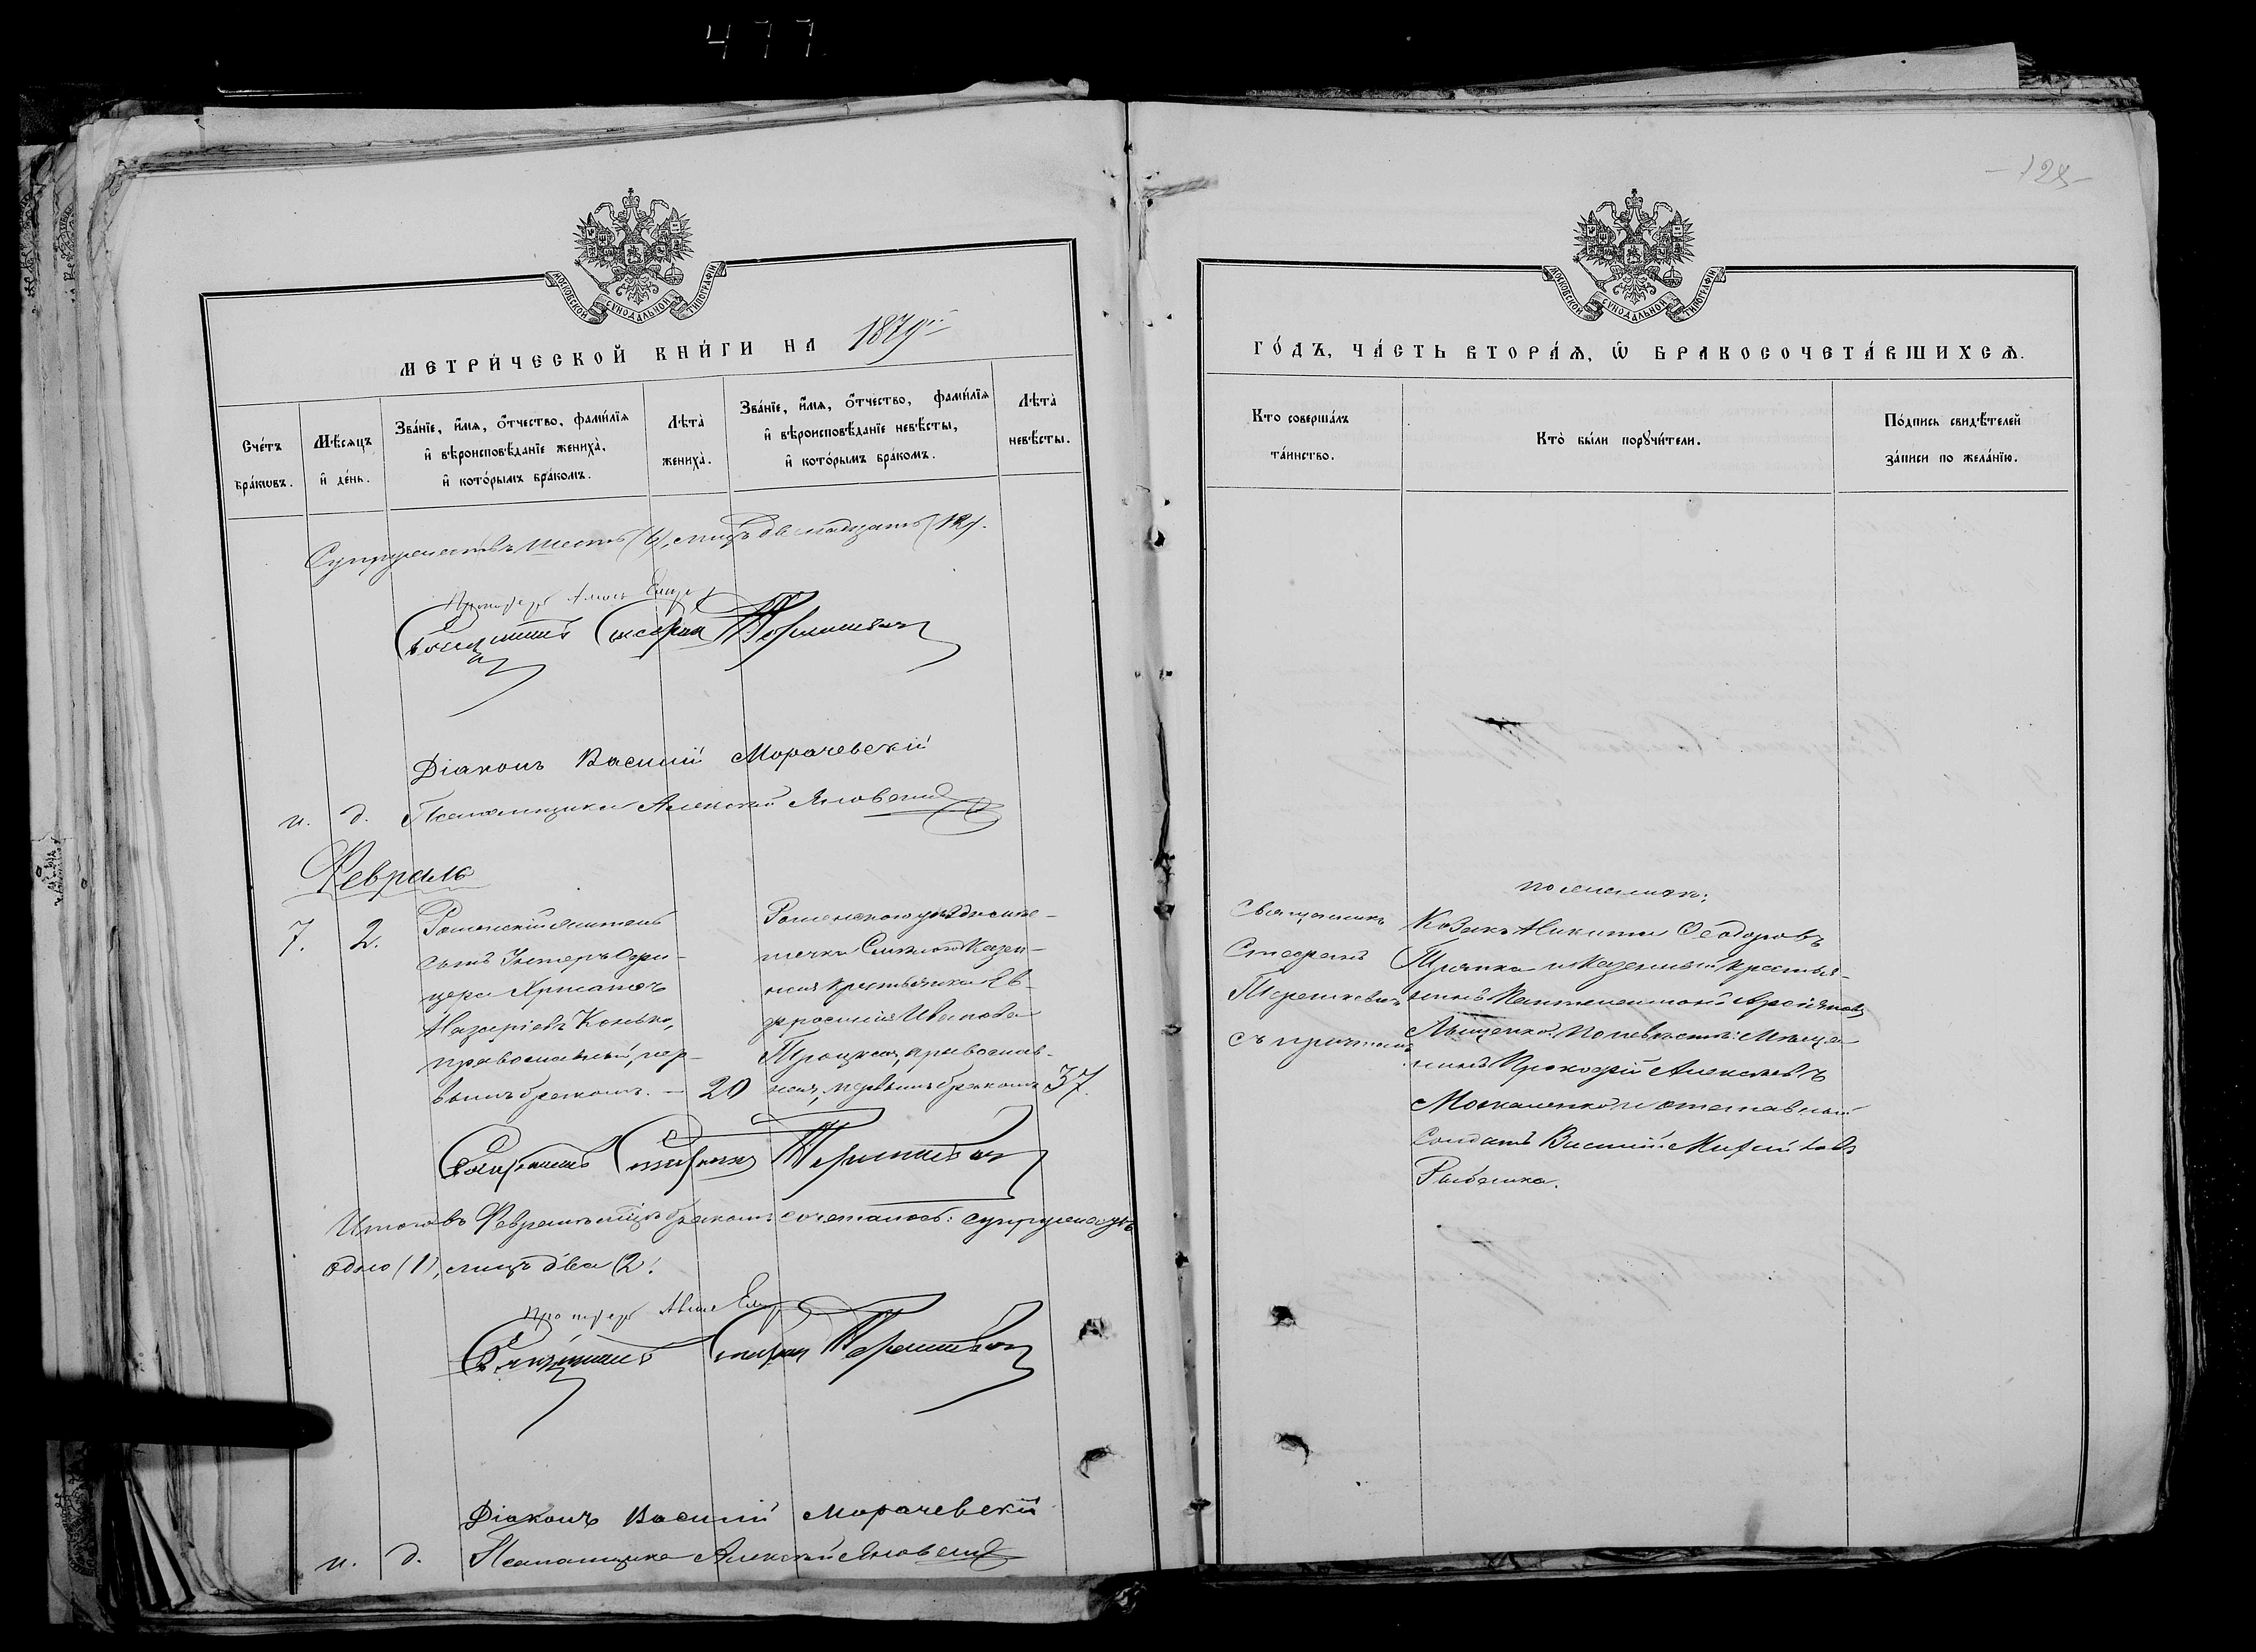 477.
МОСКОВСКОЙ СѴНОДАЛЬНОЙ ТИПОГРАФІИ
МЕТРИ́ЧЕСКОЙ КНИ́ГИ НА 1879й
Сче́тъ бра́кωвъ.
Мѣ́сѧцъ и҆ де́нь.
Зва́нїе, и҆́мѧ, ѻ҆́тчество, фами́лїѧ
и҆ вѣроисповѣ́данїе жениха̀,
и҆ кото́рымъ бра́комъ.
Лѣта̀
жениха̀.
Зва́нїе, и҆́мѧ, ѻ҆́тчество, фами́лїѧ
и҆ вѣроисповѣ́данїе невѣ́сты,
и҆ кото́рымъ бра́комъ.
Лѣта̀
невѣ́сты.
Супружествъ шесть (6), лицъ двѣнадцать (12).
Священникъ Стефанъ Терешкевич
Діаконъ Василій Морачевскій
и. д. Псаломщика Алексѣй
Февраль
7. 2.
Роменскій житель
сынъ Унтеръ Офи-
цера Хрисанфъ
Назаріевъ Конько,
православный, пер-
вымъ бракомъ. — 20
Роменского уѣзда мѣс-
течка Смѣлого Казен-
ная крестьянка Ев-
фросинія Иванова
Троцкая, православ-
ная, первымъ бракомъ 37.
Священникъ Стефанъ Терешкевич
Итого въ Февралѣ мѣсцѣ бракомъ сочеталось: супружествъ
одно (1), лицъ два (2).
Священникъ Стефанъ Терешкевич
Діаконъ Василій Морачевскій
и. д. Псаломщика Алексѣй
-128-
МОСКОВСКОЙ СѴНОДАЛЬНОЙ ТИПОГРАФІИ
ГО́ДЪ, ЧА́СТЬ ВТОРА́Ѧ, Ѡ҆ БРАКОСОЧЕТА́ВШИХСѦ.
Кто соверша́лъ
та́инство.
Кто̀ бы́ли порꙋчи́тели.
По́дпись свидѣ́телей
за́писи по жела́нїю.
Священникъ
Стефанъ
Терешкевичъ
съ причтомъ
по женихѣ:
Козакъ Никита Ѳеодоровъ
и Казенный крестья-
нинъ Пантелеимонъ
Лыщенко. По невѣстѣ: Мѣща-
нинъ Прокофій Алексѣевъ
Москаленко и отставный
Солдатъ Василій Михайловъ
Рыбалка.